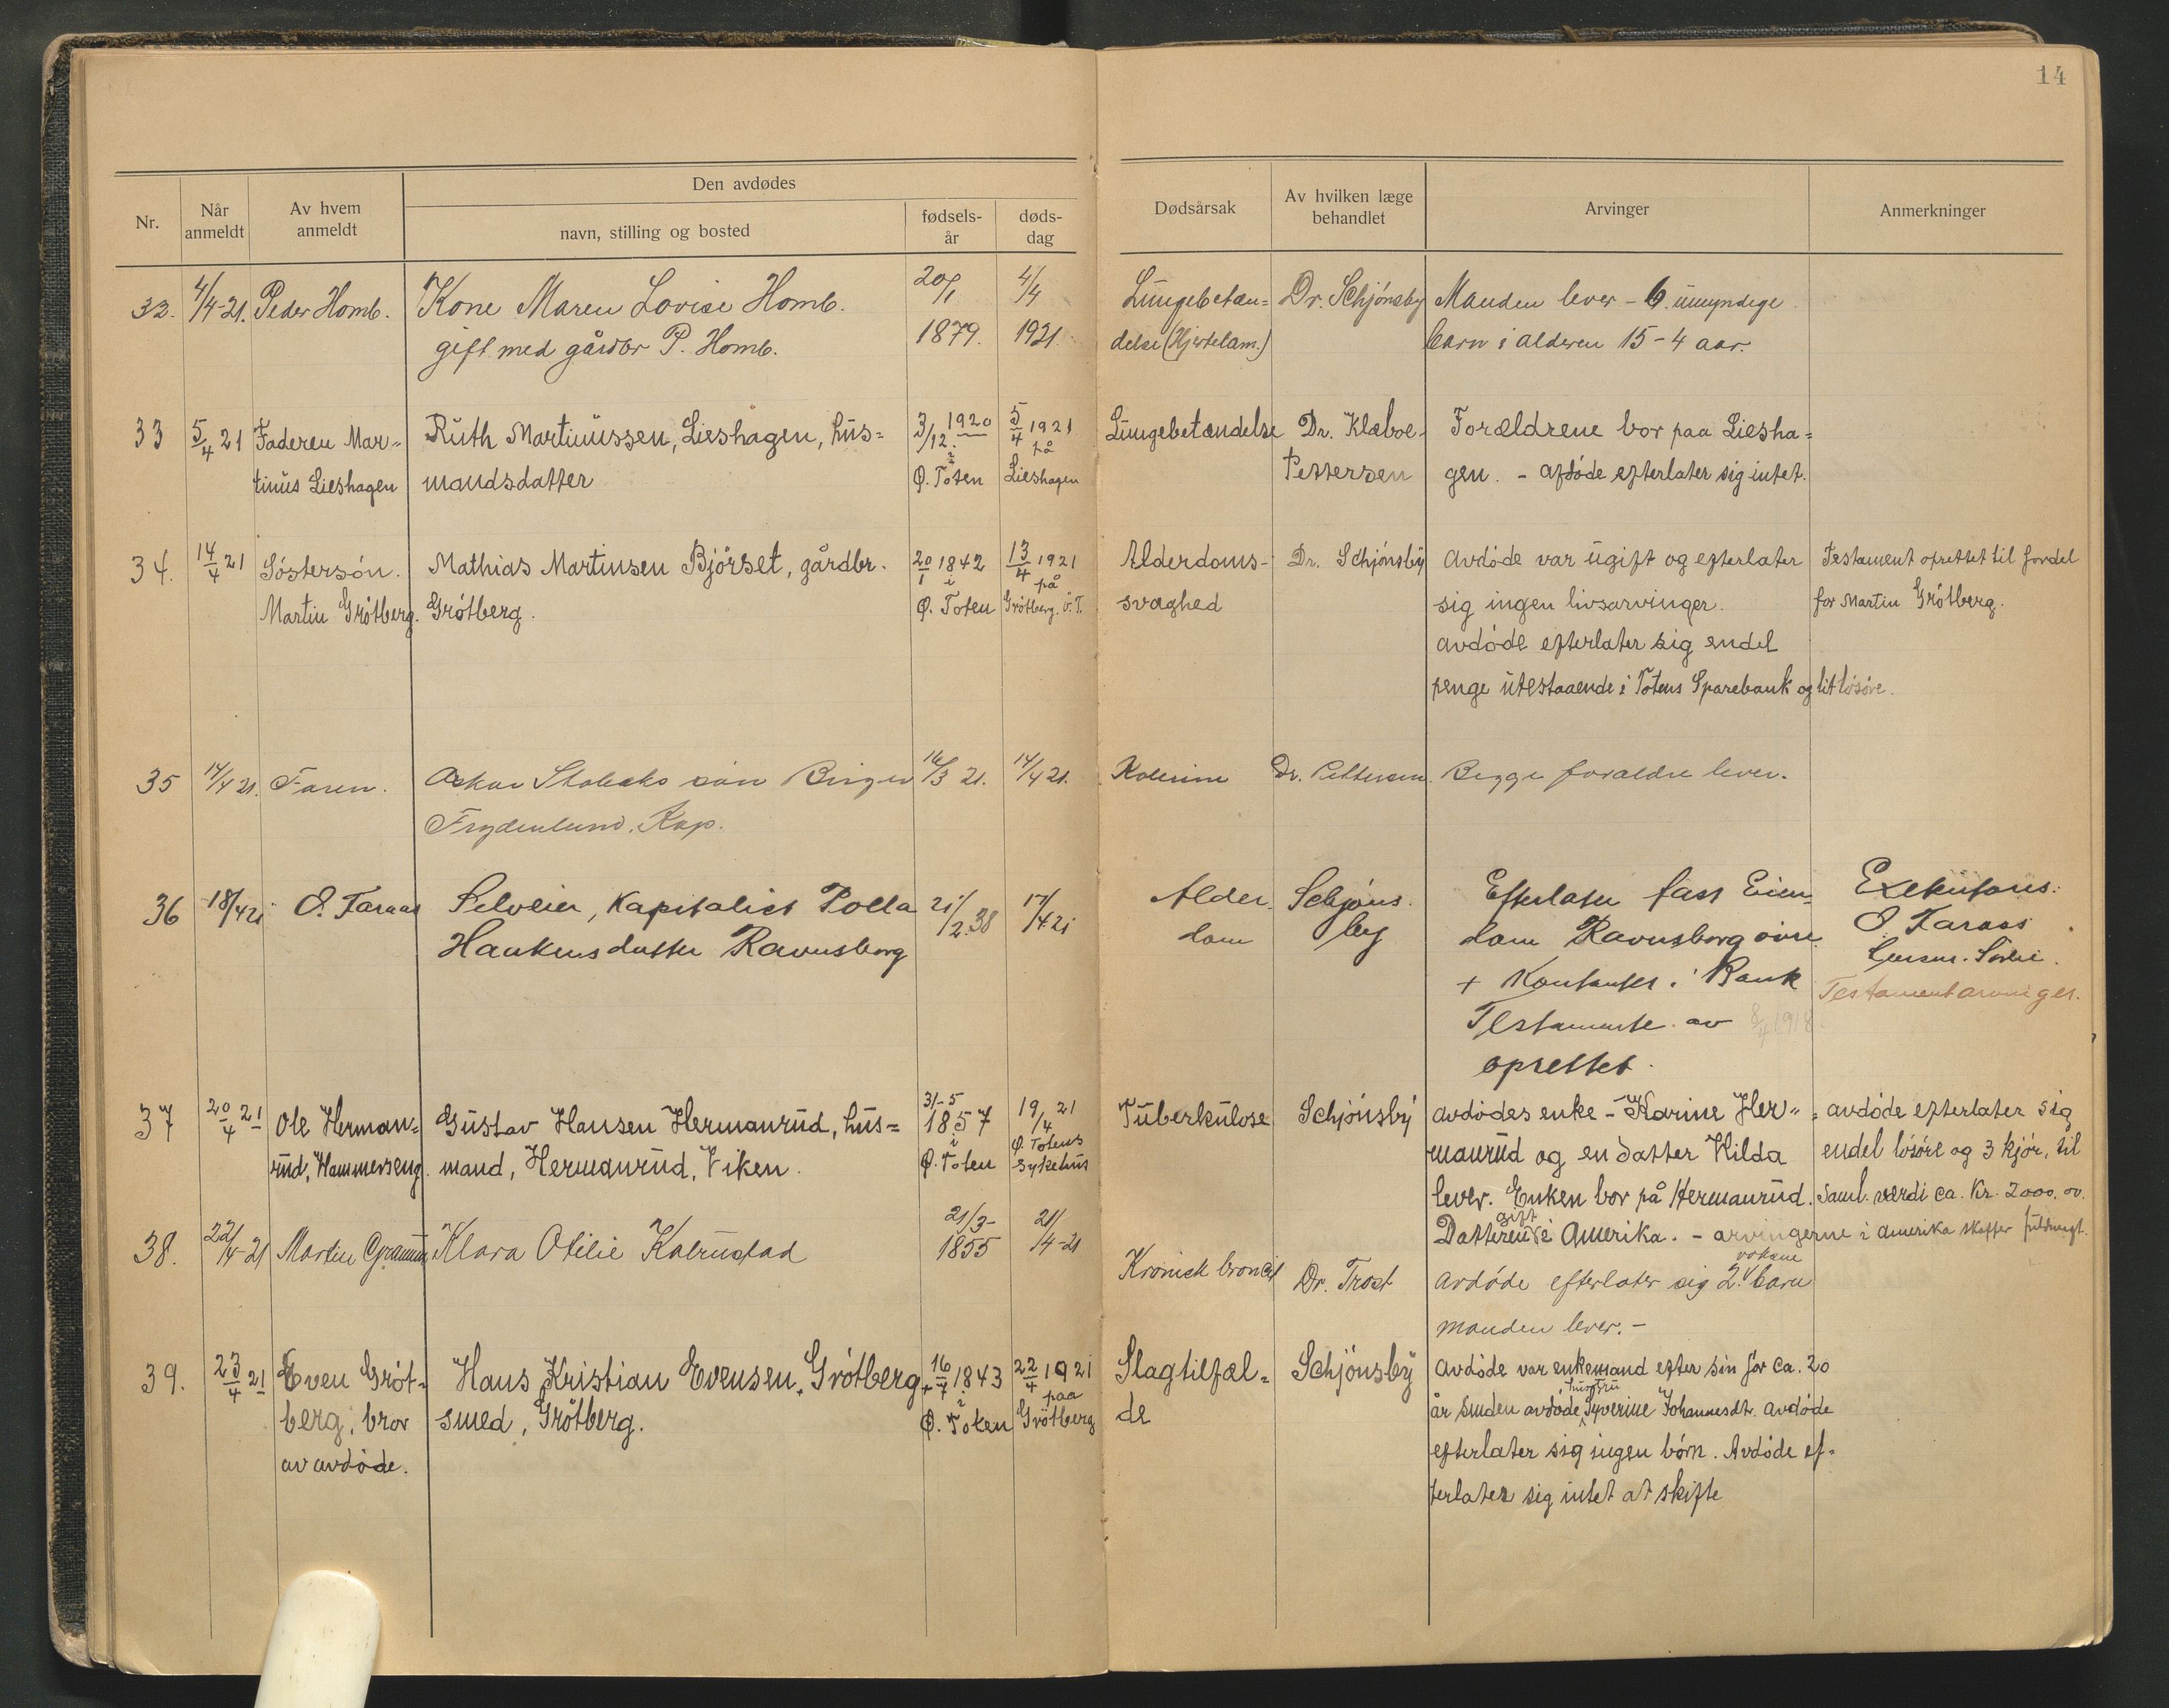 14
Den avdødes
Nr.
Når anmeldt
Av hvem anmeldt
navn, stilling og bosted
fødsels-år
døds-dag
Dødsårsak
Av hvilken læge behandlet
Arvinger
Anmerkninger
32. 4/4-21. Peder Homb. Kone Maren Lovise Homb. 20/1 4/4 Lungebetæn= Dr. Schjönsby Manden lever - 6 umyndige
gift med gårdbr P. Homb. 1879. 1921. delse (Hjertelam.) barn i alderen 15-4 aar.
33 5/4 21 Faderen Mar= Ruth Martinussen, Lieshagen, hus= 3/12 1920 5/4 1921 Lungebetændelse Dr. Klæboe- Forældrene bor paa Liesha=
i på
tinus Lieshagen mandsdatter Ø. Toten Lieshagen Pettersen gen. - afdöde efterlater sig intet.
34. 14/4 21 Söstersön. Mathias Martinsen Björset, gårdbr. 20/1 1842 13/4 1921 Alderdoms- Dr. Schjönsby Avdöde var ugift og efterlater Testament oprettet til fordel
i på
Martin Grötberg. Grötberg. Ø. Toten Grötberg. Ö.T. svaghed sig ingen livsarvinger. for Martin Grötberg.
avdöde efterlater sig endel
penge utestaaende i Totens Sparebank og lit lösöre.
35 14/4 21. Faren. Oskar sön Birger /3 21. 14/4 21. Dr. Pettersen. Begge foraldre lever.
Frydenlund. Kap.
36 18/4 21 O. Taraas Selveier, Kapitalist Polla 21/2.38 17/4 21 Alder Schjöns. Efterlater fast Eien= Exekutors:
Haakensdatter Ravnsborg dom by dom Ravnsborg övre O. Taraas
+ Kontanter i Bank Testamentarvinger.
Testamente av 8/4 1918
oprettet.
37 20/4 21 Ole Herman= Gustav Hansen Hermanrud, hus= 31-5 1857 19/4 21 Tuberkulose Schjönsby avdödes enke - Karine Her= avdöde efterlater sig
rud, Hammerseng. mand, Hermanrud, Viken. i Ø. Toten Ø. Totens sykehus manrud og en datter Hilda endel lösöre og 3 kjör, til
lever. Enken bor på Hermanrud. saml. værdi ca. Kr. 2000.oo.
gift
Datteren i Amerika. - arvingerne i Amerika skaffer fuldmagt.
38. 22/4-21 Martin Klara Otilie Kalrustad 21/3- 1855 21/4-21 Kronisk broncit Dr. Trost avdöde efterlater sig 2 voksne barn
manden lever. -
39. 23/4 21 Even Gröt= Hans Kristian Evensen Grötberg, 16/7 1843 22/4 1921 Slagtilfæl= Schjönsby Avdöde var enkemand efter sin for ca. 20
i paa
berg, bror smed, Grötberg. Ø. Toten Grötberg de år siden avdöde hustru Syverine Johannesdtr. Avdöde
av avdöde. efterlater sig ingen börn. Avdöde ef=
terlater sig intet at skifte